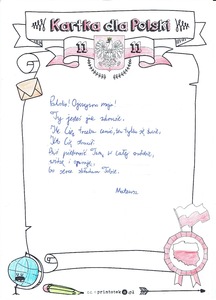 Kartka dla Polski
11 11
Polsko! Ojczyzno moja!
Ty jesteś jak zdrowie.
Ile Cię trzeba cenić, ten tylko się dowie,
Kto Cię stracił.
Dziś piękność Twą w całej ozdobie,
widzę i opisuję,
bo
Mateusz
printoteka.pl